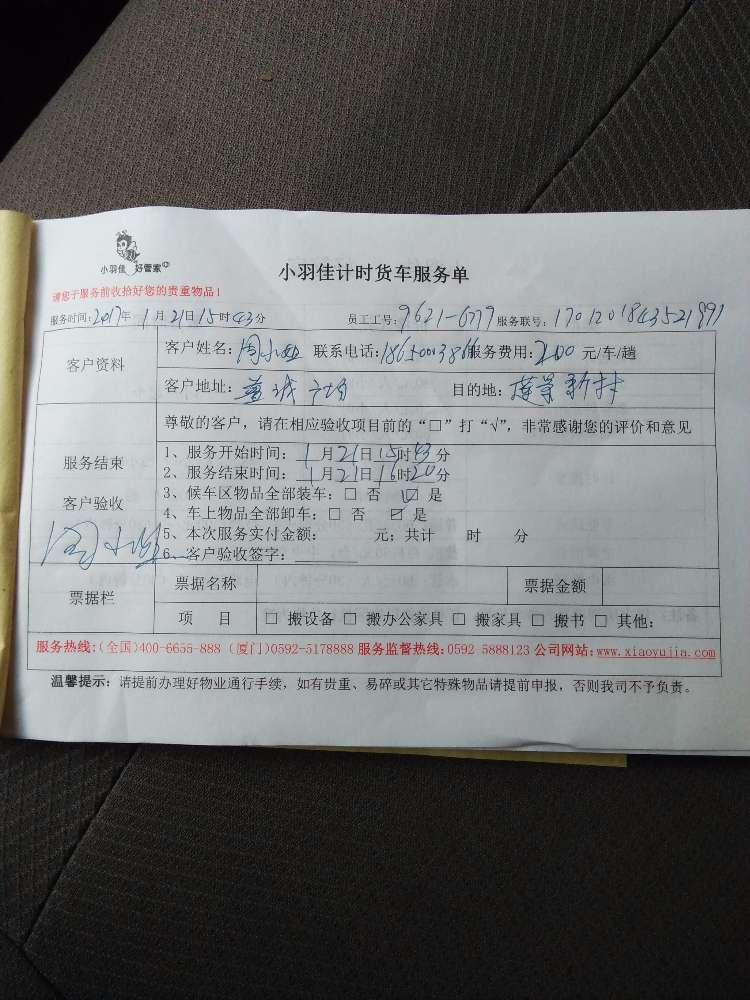 小羽佳 好管家
小羽佳计时货车服务单
请您于服务前收拾好您的贵重物品！
服务时间：2017年 1月21日15时43分 员工工号：9621-6779 服务联号：1701201843521891
客户资料
客户姓名：周小 联系电话： 服务费用：200 元/车/趟
客户地址： 广场 目的地：莲景新村
尊敬的客户，请在相应验收项目前的“□”打“√”，非常感谢您的评价和意见
服务结束
客户验收
1、服务开始时间：1月21日15时43分
2、服务结束时间：1月21日16时20分
3、候车区物品全部装车：□ 否 ☑ 是
4、车上物品全部卸车：□ 否 ☑ 是
5、本次服务实付金额： 元；共计 时 分
6、客户验收签字：
周小
票据栏
票据名称 票据金额
项 目 □ 搬设备 □ 搬办公家具 □ 搬家具 □ 搬书 □ 其他：
服务热线：(全国)400-6655-888 (厦门)0592-5178888 服务监督热线：0592 5888123 公司网站：www.xiaoyujia.com
温馨提示：请提前办理好物业通行手续，如有贵重、易碎或其它特殊物品请提前申报，否则我司不予负责。